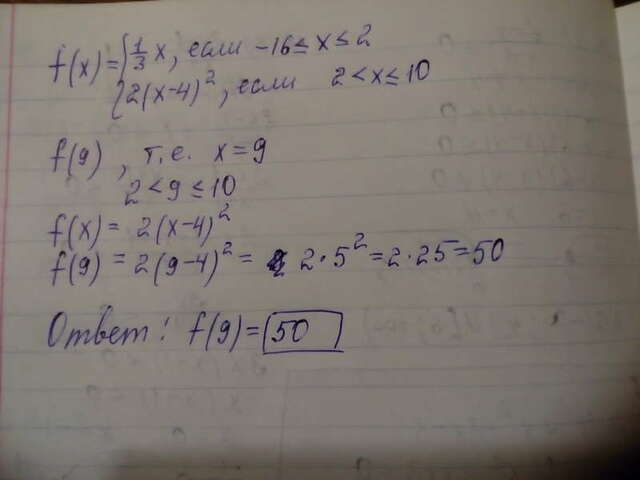 f(x) = { 1/3 x, если -16 ≤ x ≤ 2
2(x-4)², если 2 < x ≤ 10
f(9), т.е. x = 9
2 < 9 ≤ 10
f(x) = 2(x-4)²
f(9) = 2(9-4)² = 2·5² = 2·25 = 50
Ответ: f(9) = 50